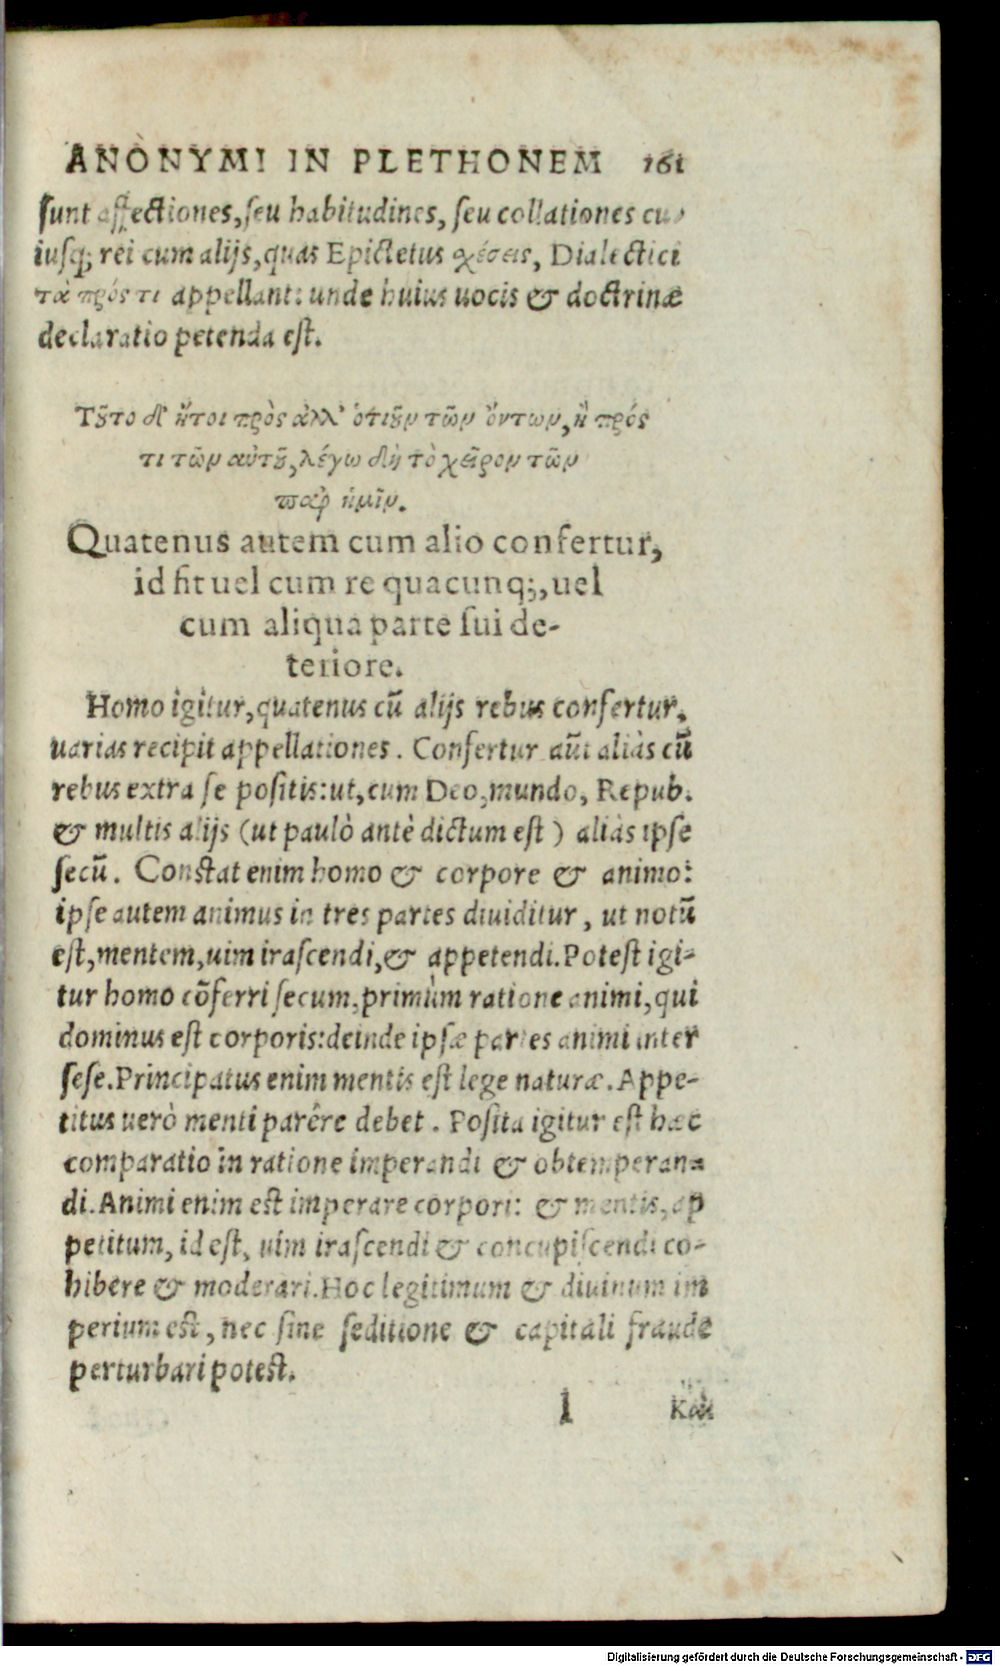 ANÒNYMI IN PLETHONEM 161
ſunt affectiones, ſeu habitudines, ſeu collationes cu-
iusq; rei cum alijs, quas Epictetus χέσεις, Dialectici
τὰ πρός τι appellant: unde huius uocis & doctrinæ
declaratio petenda eſt.
Τȣ͂το δ' ἤτοι πρὸς ἀλλ' ὁτιȣ͂ν τῶν ὄντων, ἢ πρός
τι τῶν αὑτȣ͂, λέγω δὴ τὸ χεῖρον τῶν
παρ' ἡμῖν.
Quatenus autem cum alio confertur,
id fit uel cum re quacunq;, uel
cum aliqua parte ſui de-
teriore.
Homo igitur, quatenus cũ alijs rebus confertur,
uarias recipit appellationes. Confertur aũt aliàs cũ
rebus extra ſe poſitis: ut, cum Deo, mundo, Repub.
& multis alijs (ut paulò antè dictum eſt) aliàs ipſe
ſecũ. Conſtat enim homo & corpore & animo:
ipſe autem animus in tres partes diuiditur, ut notũ
eſt, mentem, uim iraſcendi, & appetendi. Poteſt igi-
tur homo cõferri ſecum, primùm ratione animi, qui
dominus eſt corporis: deinde ipſæ partes animi inter
ſeſe. Principatus enim mentis eſt lege naturæ. Appe-
titus uerò menti parêre debet. Poſita igitur eſt hæc
comparatio in ratione imperandi & obtemperan-
di. Animi enim eſt imperare corpori: & mentis, ap
petitum, id eſt, uim iraſcendi & concupiſcendi co-
hibere & moderari. Hoc legitimum & diuinum im
perium eſt, nec ſine ſeditione & capitali fraude
perturbari poteſt.
l Καὶ
Digitalisierung gefördert durch die Deutsche Forschungsgemeinschaft - DFG